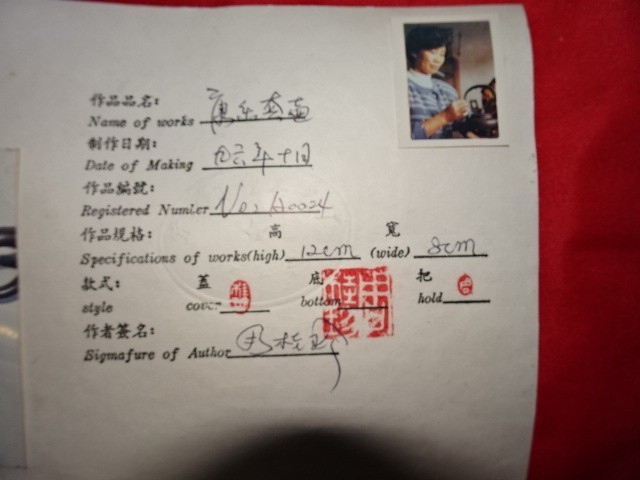 作品品名：
Name of works
制作日期：
Date of Making 九六年十月
作品編號：
Registered Numler No: A0024
作品規格： 高 寬
Specifications of works(high) 12cm (wide) 8cm
款式： 蓋 底 把
style cover bottom hold
作者簽名：
Sigmafure of Author